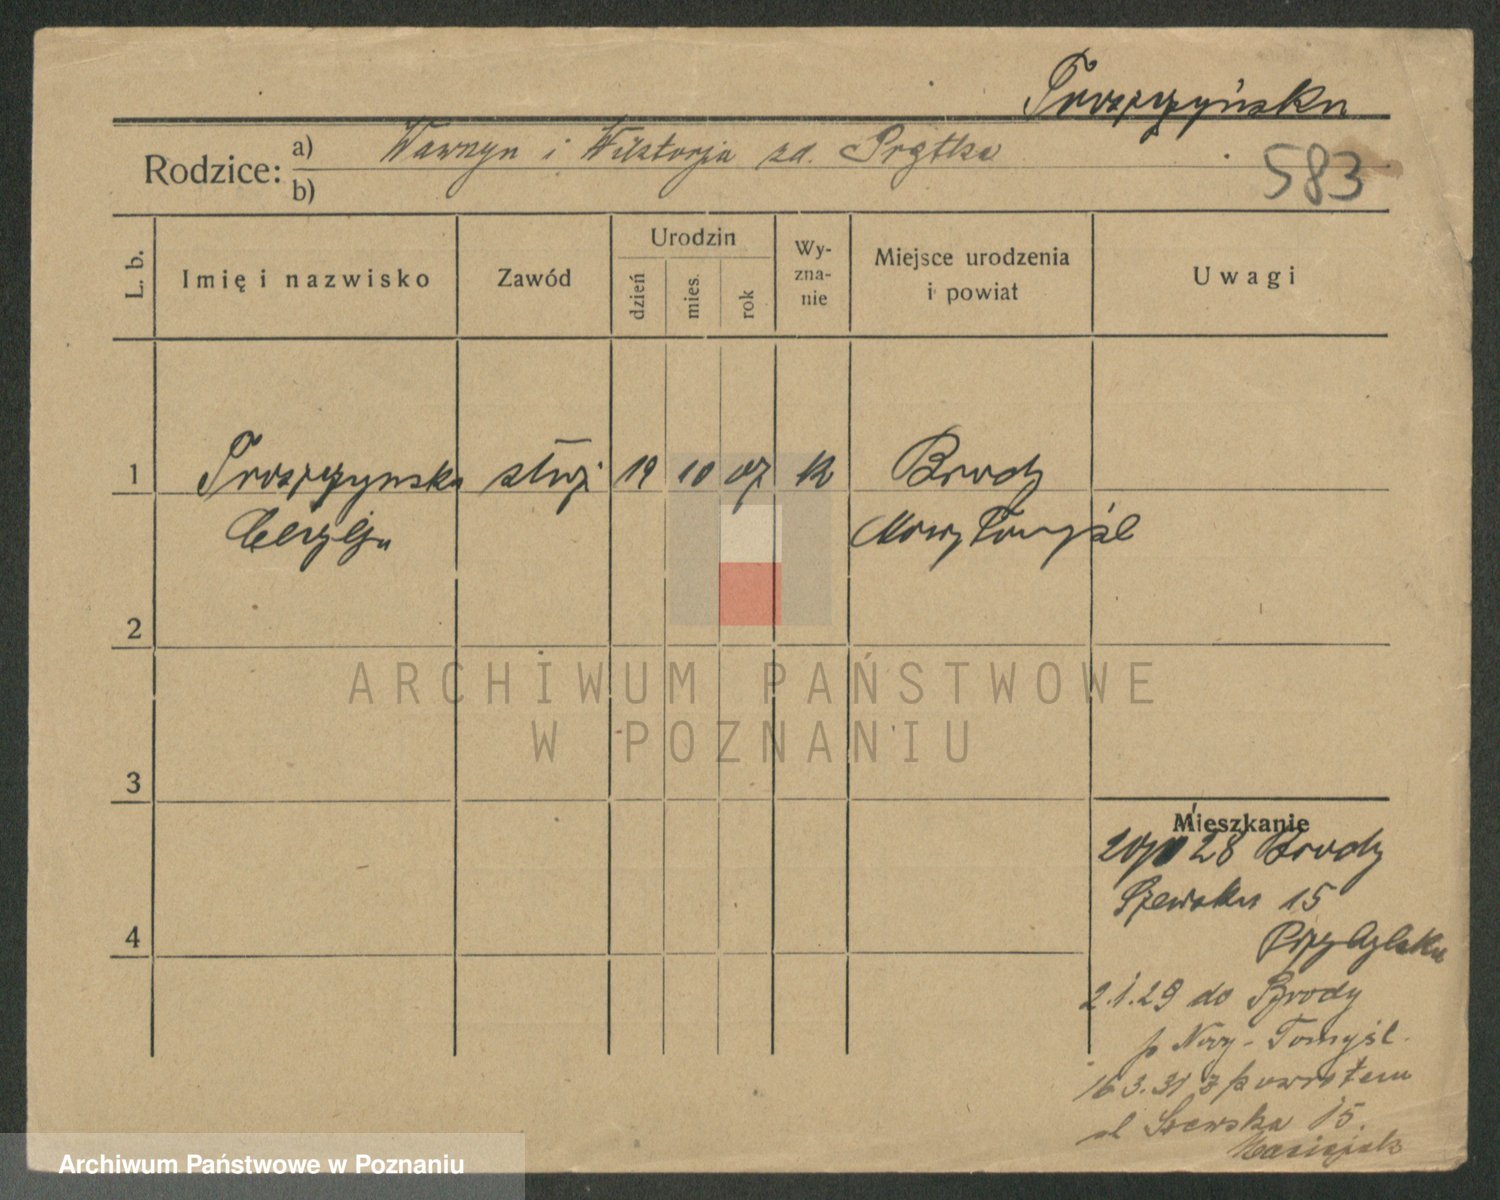 Proszyńska
Rodzice: a) Wawrzyn i Wiktorja zd. Prętka
b)
583
L. b.
Imię i nazwisko
Zawód
Urodzin
dzień
mies.
rok
Wy-
zna-
nie
Miejsce urodzenia
i powiat
Uwagi
1 służ 19 10 07 k Brody
Nowy Tomyśl
2
3
4
Mieszkanie
28 Brody
Szewska 15
2.1.29 do Brody
p Nowy-Tomyśl.
16.3.31 z powrotem
ul Szewska 15.
ARCHIWUM PAŃSTWOWE
W POZNANIU
Archiwum Państwowe w Poznaniu